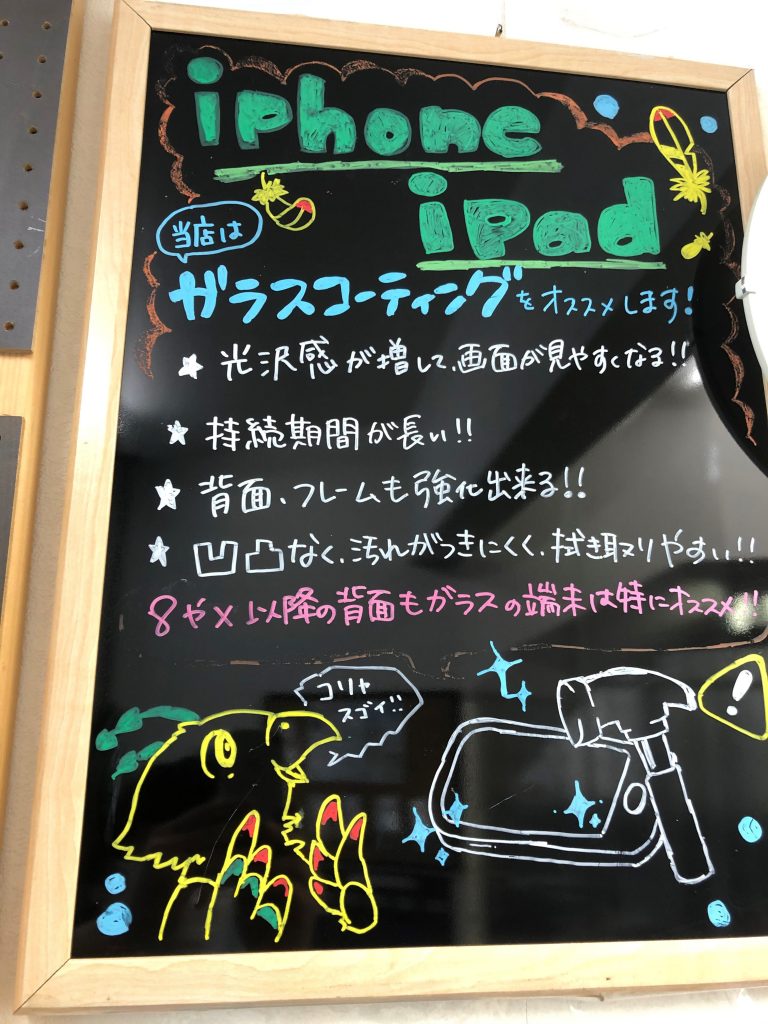 iphone
iPad
当店は
ガラスコーティングをオススメします!
★ 光沢感が増して、画面が見やすくなる!!
★ 持続期間が長い!!
★ 背面、フレームも強化出来る!!
★ 凹凸なく、汚れがつきにくく、拭き取りやすい!!
8やX以降の背面もガラスの端末は特にオススメ!!
コリャ
スゴイ!!
!